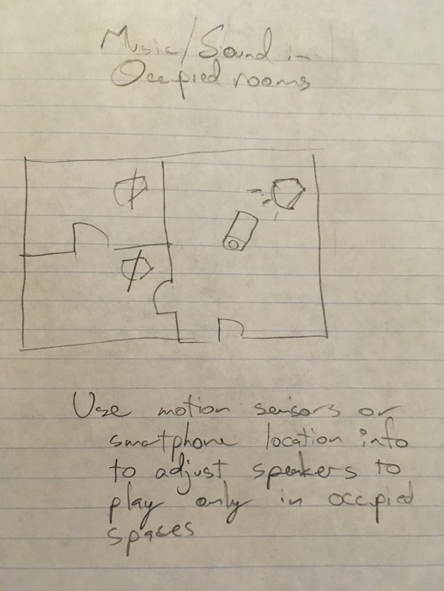 Music/Sound in
Occupied rooms
Use motion sensors or
smartphone location info
to adjust speakers to
play only in occupied
spaces